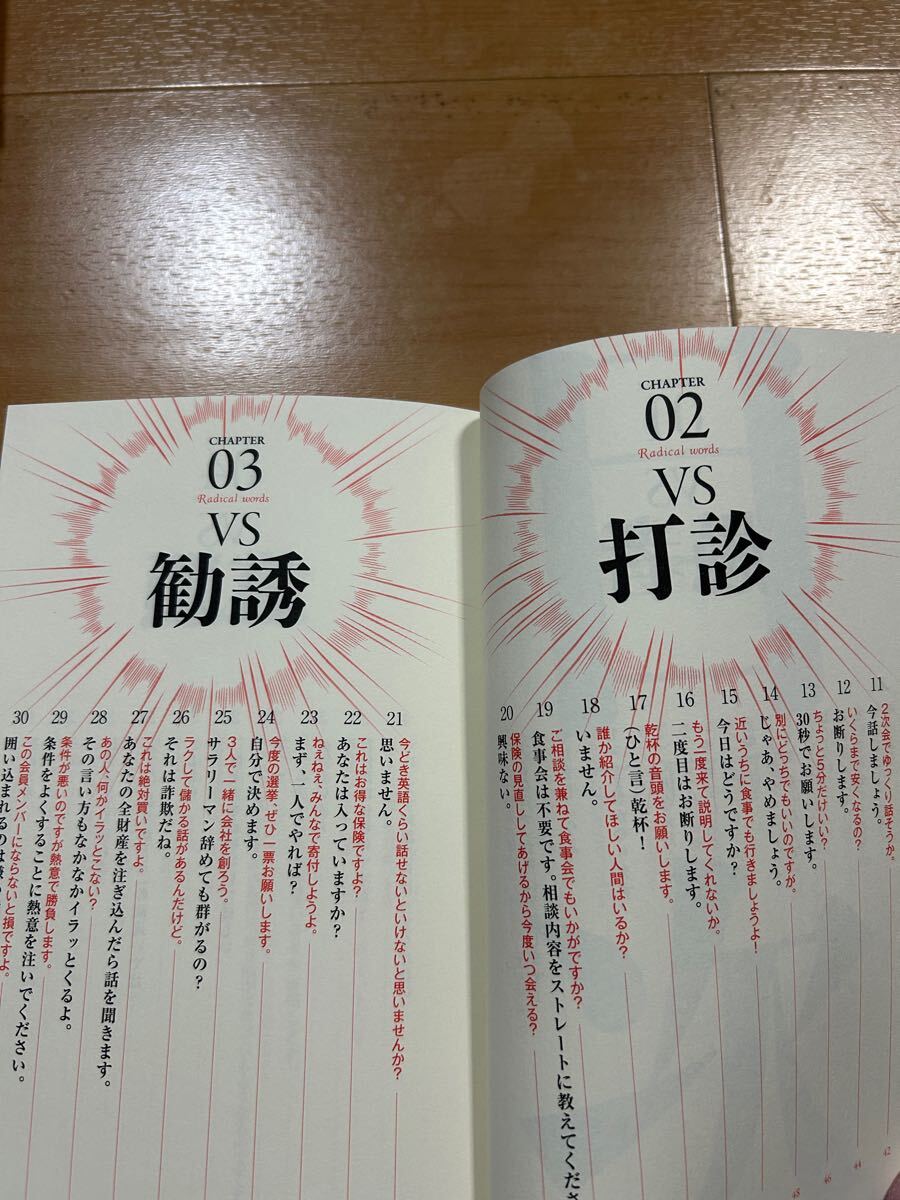 CHAPTER
02
Radical words
VS
打診
11
2次会でゆっくり話そうか。
今話しましょう。
12
いくらまで安くなるの？
お断りします。
13
ちょっと5分だけいい？
30秒でお願いします。
14
別にどっちでもいいのですが。
じゃあ、やめましょう。
15
近いうちに食事でも行きましょうよ！
今日はどうですか？
16
もう一度来て説明してくれないか。
二度目はお断りします。
17
乾杯の音頭をお願いします。
（ひと言）乾杯！
18
誰か紹介してほしい人間はいるか？
いません。
19
ご相談を兼ねて食事会でもいかがですか？
食事会は不要です。相談内容をストレートに教えてくださ
20
保険の見直ししてあげるから今度いつ会える？
興味ない。
42
44
46
48
CHAPTER
03
Radical words
VS
勧誘
21
今どき英語くらい話せないといけないと思いませんか？
思いません。
22
これはお得な保険ですよ？
あなたは入っていますか？
23
ねぇねぇ、みんなで寄付しようよ。
まず、一人でやれば？
24
今度の選挙、ぜひ一票お願いします。
自分で決めます。
25
3人で一緒に会社を創ろう。
サラリーマン辞めても群がるの？
26
ラクして儲かる話があるんだけど。
それは詐欺だね。
27
これは絶対買いですよ。
あなたの全財産を注ぎ込んだら話を聞きます。
28
あの人、何かイラッとこない？
その言い方もなかなかイラッとくるよ。
29
条件が悪いのですが熱意で勝負します。
条件をよくすることに熱意を注いでください。
30
この会員メンバーにならないと損ですよ。
囲い込まれるのは嫌い